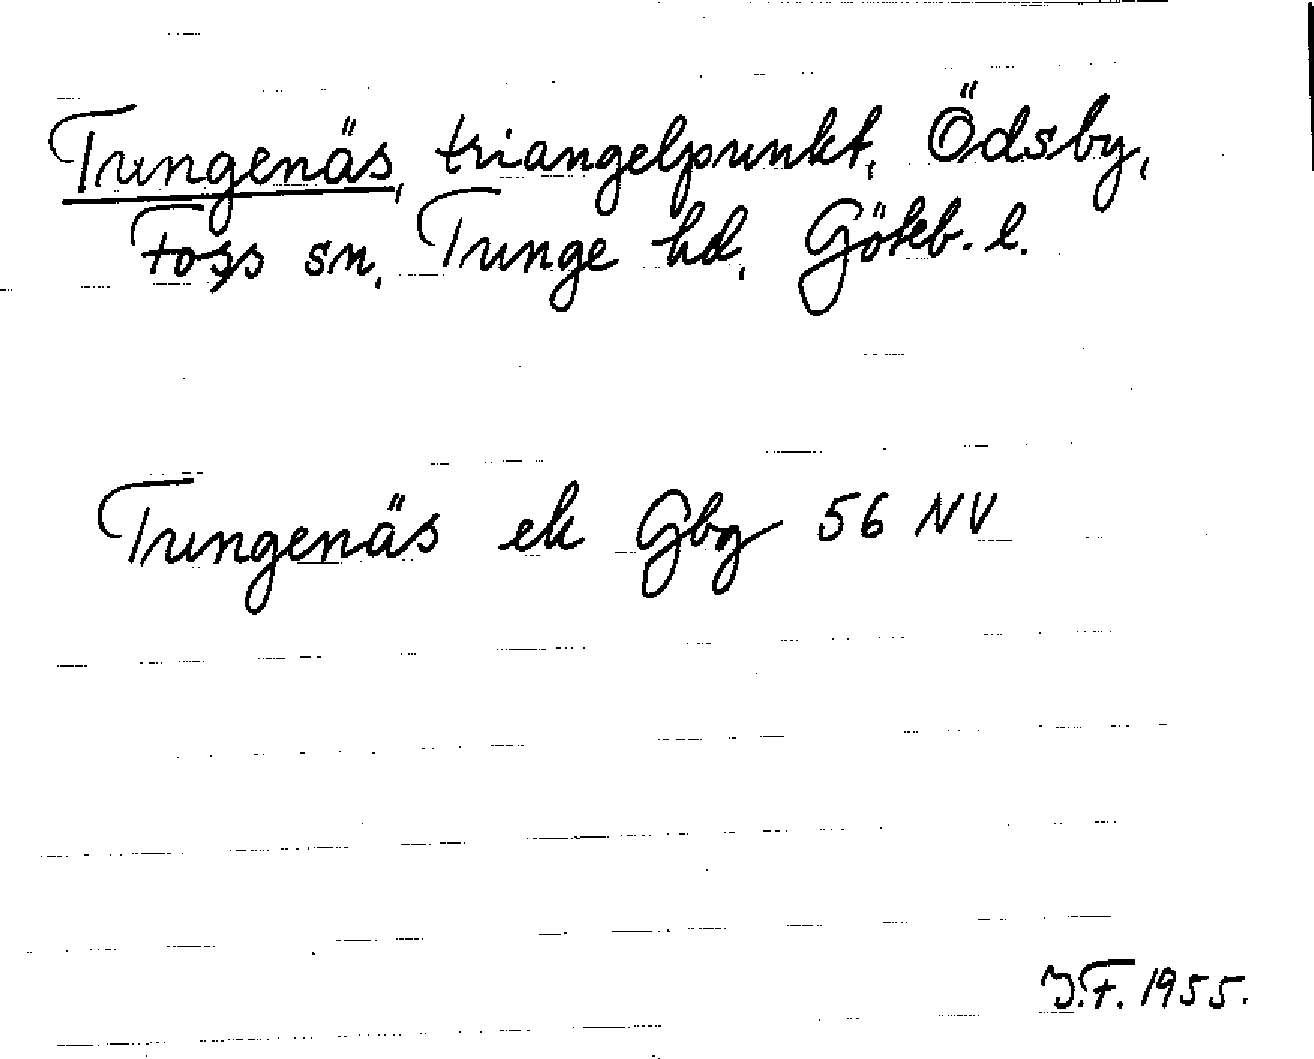 Tungenäs, triangelpunkt, Ödsby,
Foss sn, Tunge hd, Göteb. l.
Tungenäs ek Gbg 56 NV
J.F. 1955.